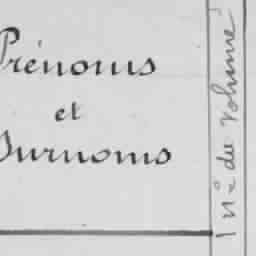 Prénoms
et
Surnoms
N° du volume